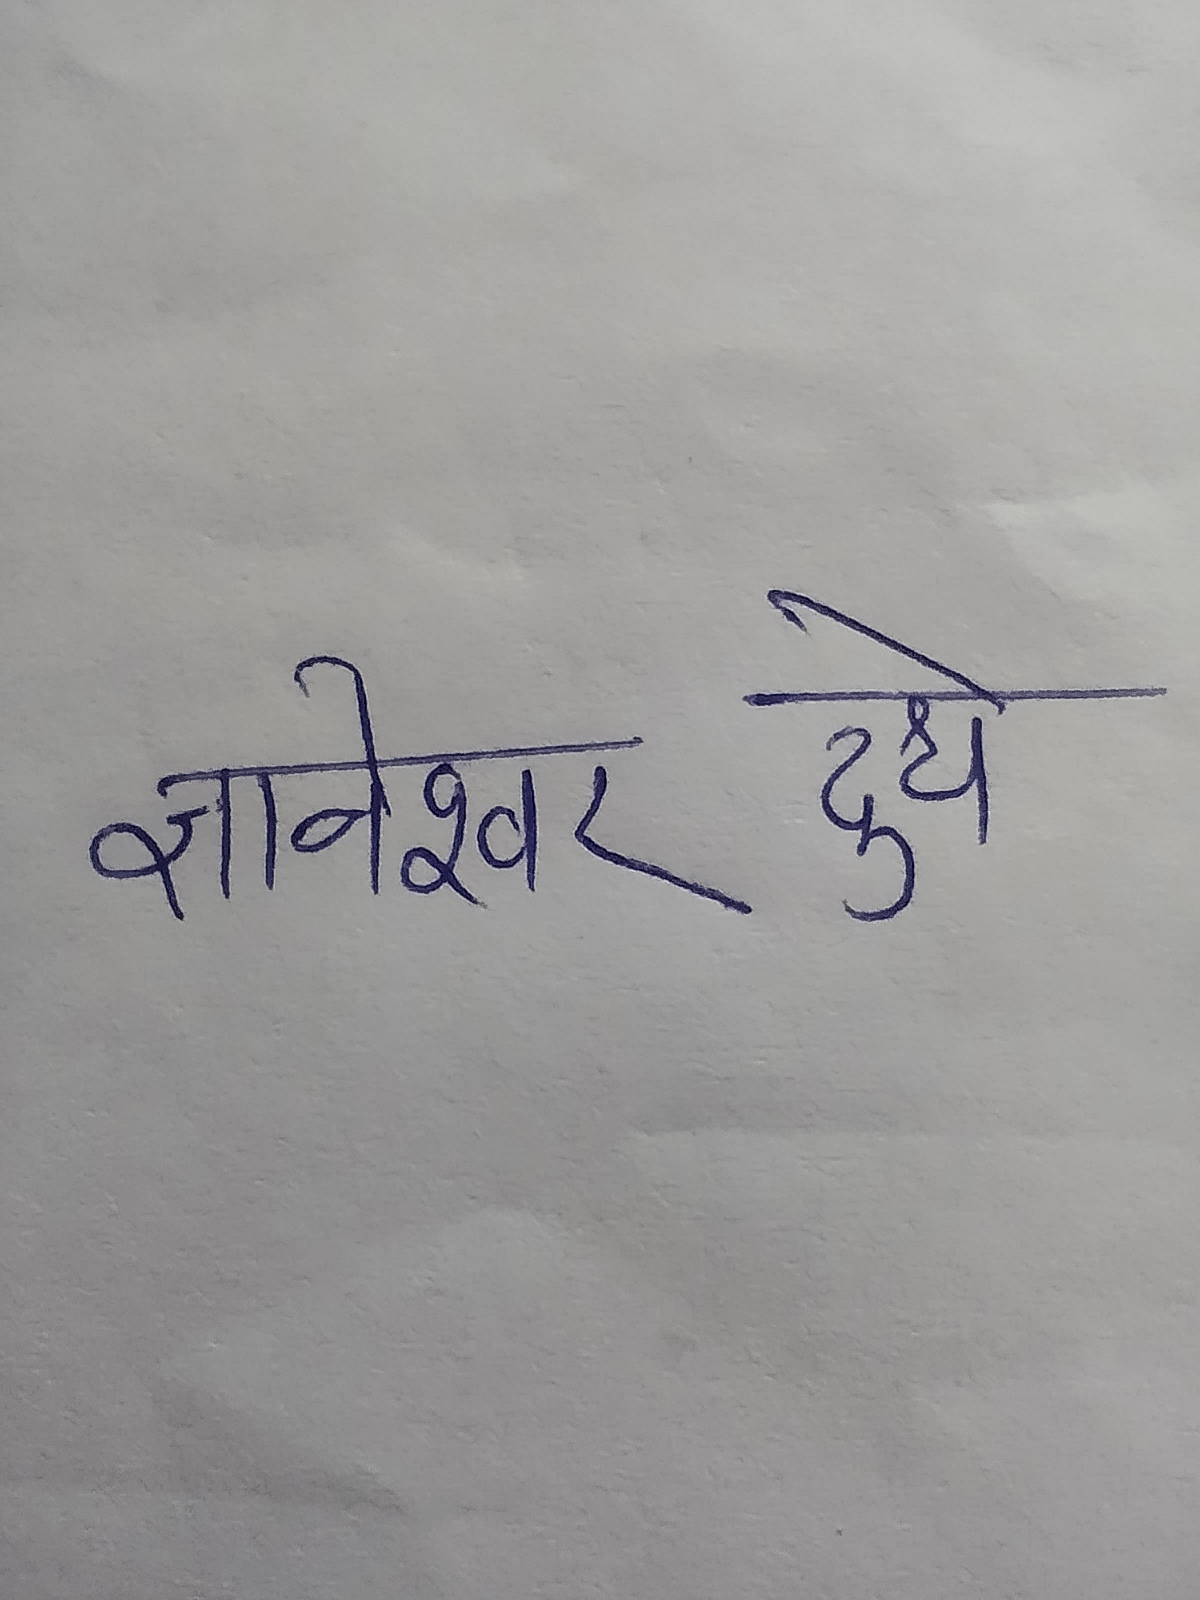 ज्ञानेश्वर दुधे